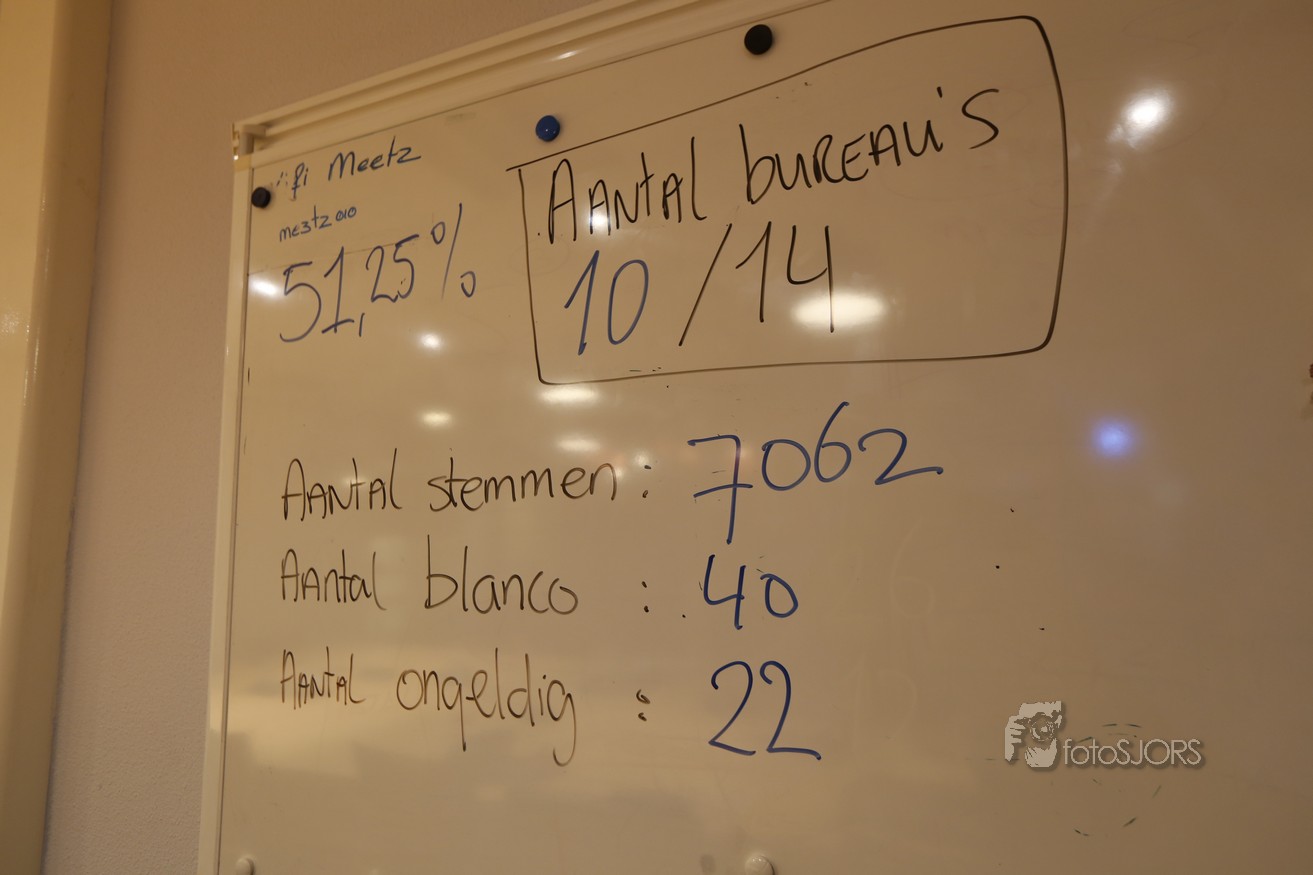 wifi Meetz
me3tz010
51,25%
AANTAL bUREAU'S
10/14
AANTAL stemmen: 7062
AANtal blanco : 40
AANTAL ongeldig : 22
fotoSJORS